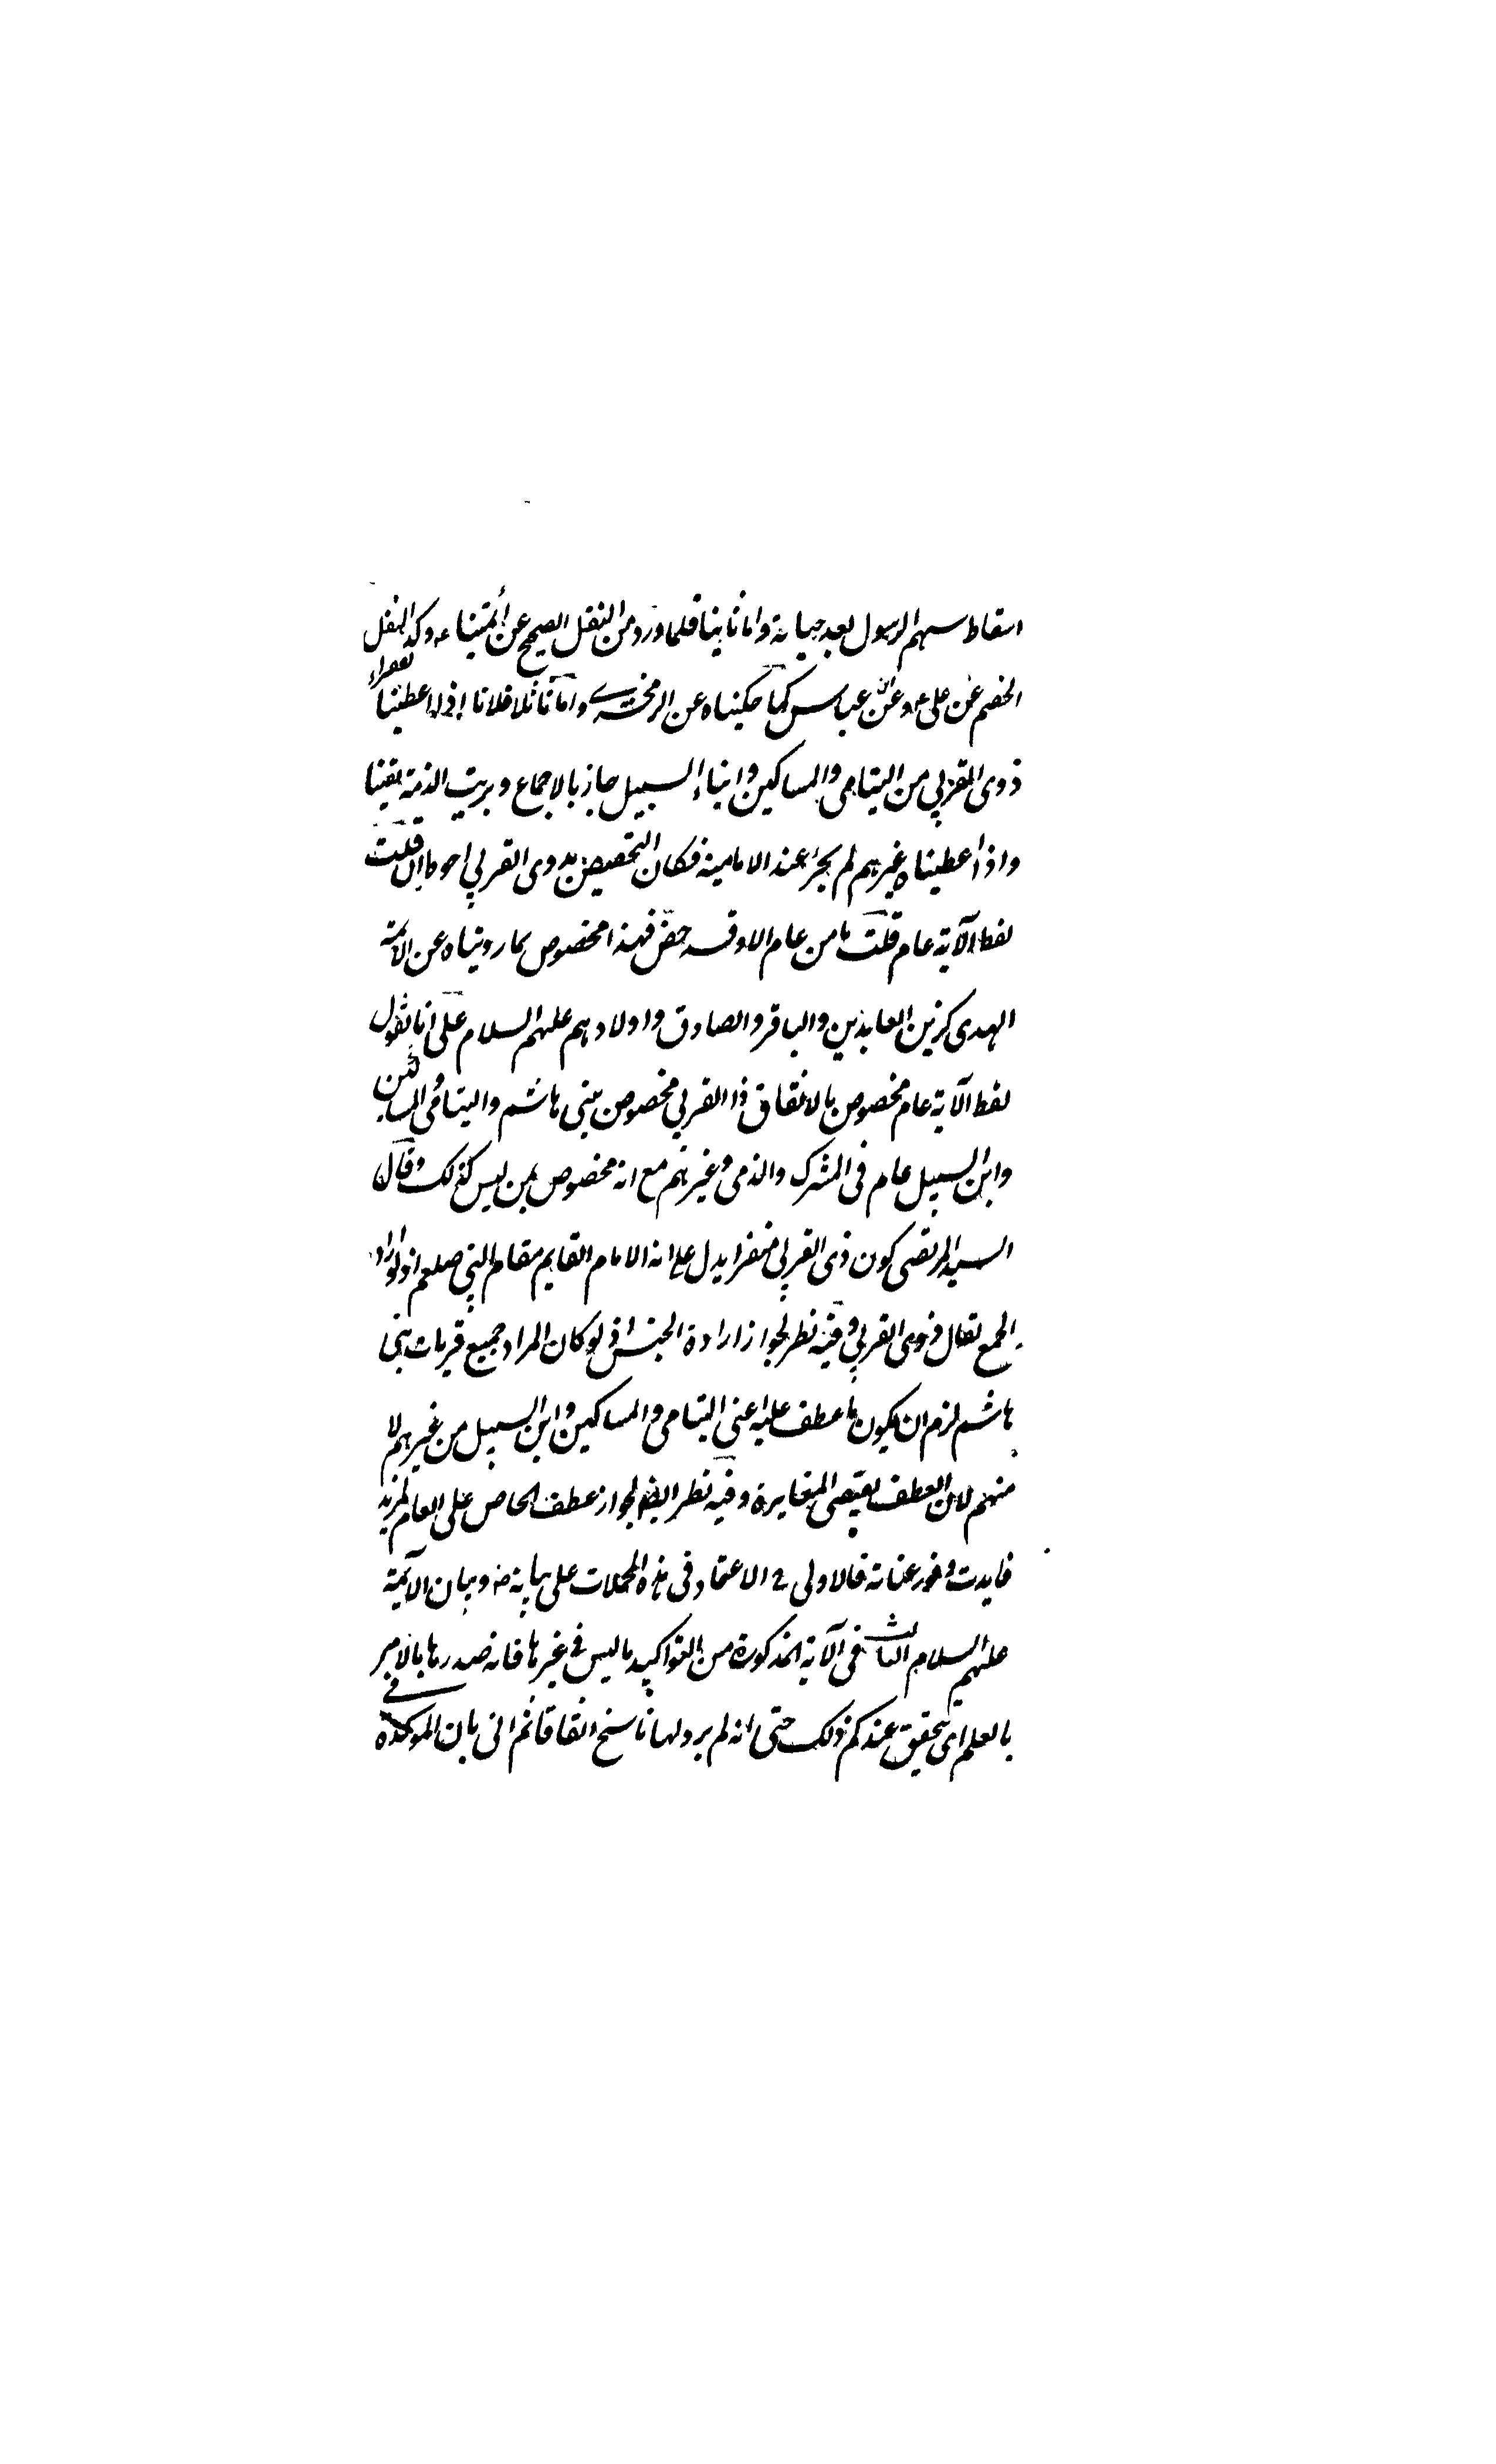 اسقاط سهم الرسول بعد حياته واما ثانيا فلما ورد من النقل الصحيح عن أئمتنا ع وكذا نقل
الخصم عن على ع وعن ابن عباس كما حكيناه عن الزمخشرى واما ثالثا فلانا إذا اعطينا فقراء
ذوى القربى من اليتامى والمساكين وابناء السبيل جاز بالاجماع وبريت الذمة يقينا
واذا اعطيناه غيرهم لم يجز عند الامامية فكان التخصيص بذوى القربى احوط ان قلت
لفظ الآية عام قلت ما من عام الا وقد خص فهذا مخصوص بما رويناه عن الائمة
الهدى كزين العابدين والباقر والصادق واولادهم عليهم السلام على انا نقول
لفظ الآية عام مخصوص بالاتفاق ذا القربى مخصوص ببنى هاشم واليتامى والمساكين
وابن السبيل عام فى المشرك والذمى وغيرهم مع انه مخصوص بمن ليس كذلك وقال
السيد المرتضى كون ذى القربى مفردا يدل على انه الامام القايم مقام النبى صلعم اذ لو اراد
الجمع لقال ذوى القربى وفيه نظر لجواز ارادة الجنس اذ لو كان المراد جميع قربات بنى
هاشم لزم ان يكون ما عطف عليه اعنى اليتامى والمساكين وابن السبيل من غيرهم لا
منهم لان العطف يقتضى المغايرة وفيه نظر ايضا لجواز عطف الخاص على العام لمزيد
فايدت وفور عناته فالاولى ح الاعتماد فى هذه المجملات على بيانه ص وبيان الآئمة
عليهم السلام الثالث فى الآية المذكورة من التواكيد ما ليس فى غيرها فانه صدرها بالامر
بالعلم اى يتحقق عندكم ذلك حتى انه لم يرد لها ناسخ اتفاقا ثم اتى بان الموكدة فى